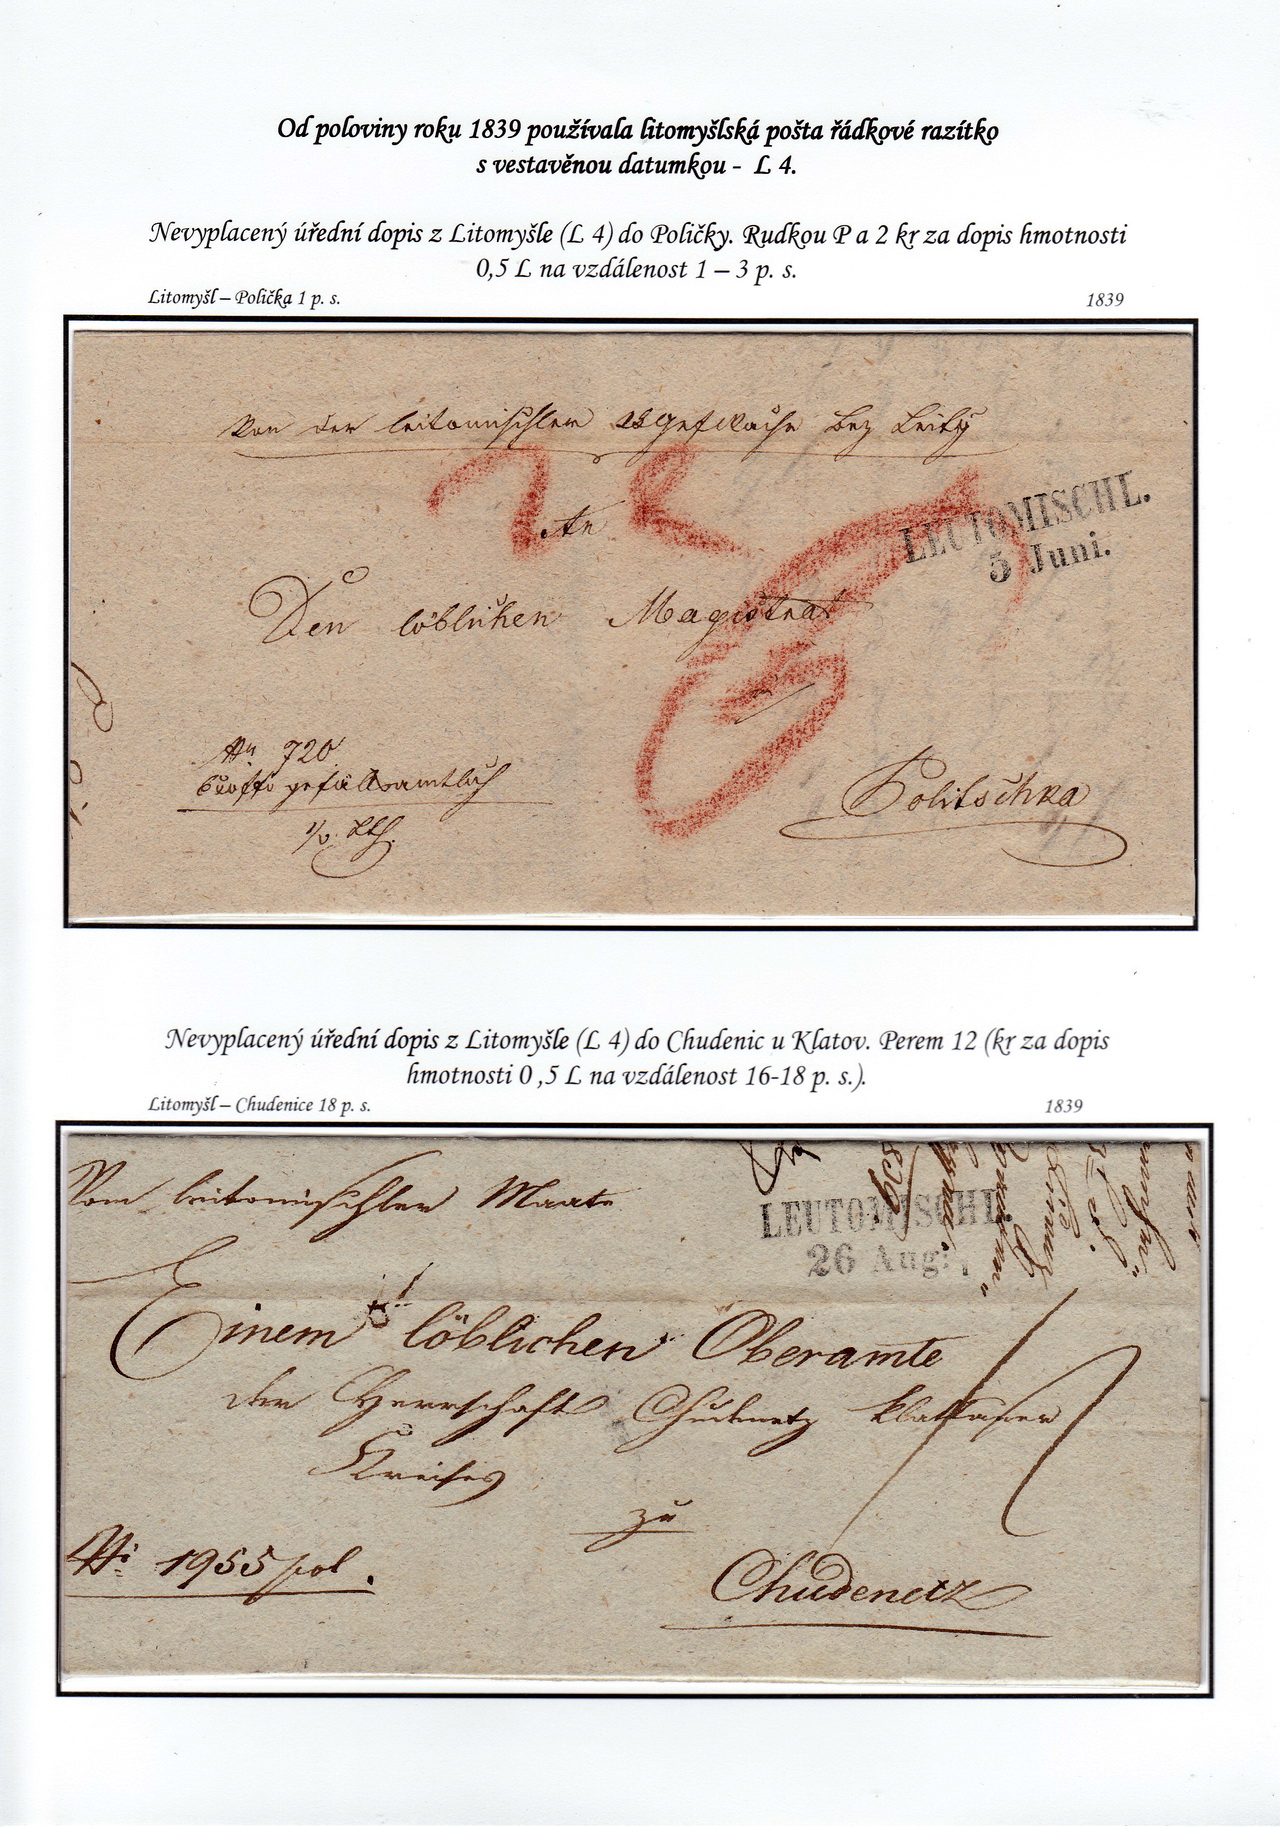 Od poloviny roku 1839 používala litomyšlská pošta řádkové razítko
s vestavěnou datumkou - L 4.
Nevyplacený úřední dopis z Litomyšle (L 4) do Poličky. Rudkou P a 2 kr za dopis hmotnosti
0,5 L na vzdálenost 1 – 3 p. s.
Litomyšl – Polička 1 p. s.
1839
Von der leitomischler
2
An
LEUTOMISCHL.
5 Juni.
Den löblichen Magistrat
P
Nr. 720
Politschka
Nevyplacený úřední dopis z Litomyšle (L 4) do Chudenic u Klatov. Perem 12 (kr za dopis
hmotnosti 0 ,5 L na vzdálenost 16-18 p. s.).
Litomyšl – Chudenice 18 p. s.
1839
Vom leitomischler
LEUTOMISCHL.
26 Aug:
Einem löblichen Oberamte
der Herrschaft Chudenetz Klattauer
Kreises
12
zu
Nr: 1955 pol.
Chudenetz